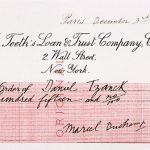 Paris December 3rd
Tooth's Loan & Trust Company, C
2, Wall Street.
New York.
Order of Daniel Tzanck
hundred fifteen and no/100
Marcel Duchamp